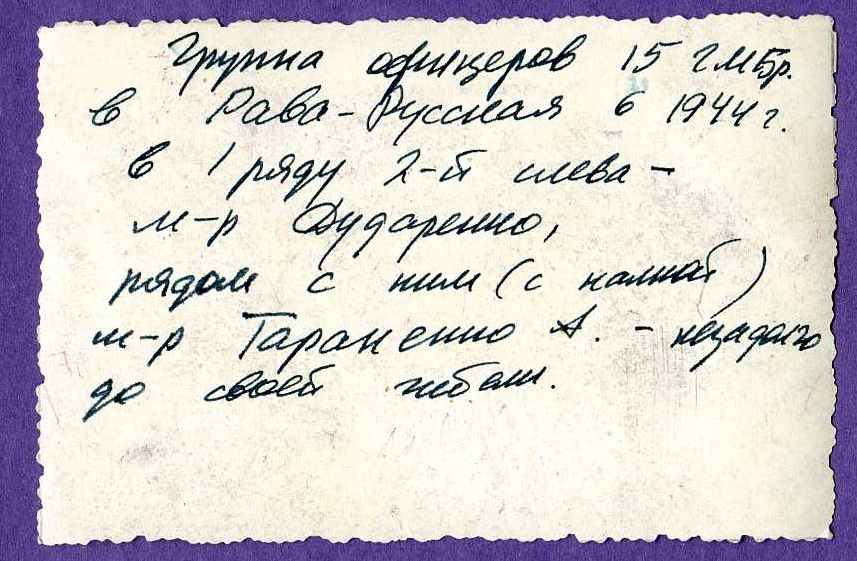 Группа офицеров 15 гмбр.
в Рава-Русская в 1944 г.
в 1 ряду 2-й слева –
м-р Дударенко,
рядом с ним (с палкой)
м-р Тараненко А. – незадолго
до своей гибели.